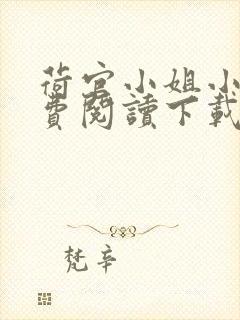 荷官小姐小
費閱讀下載
梵辛